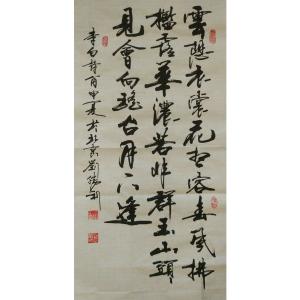 雲想衣裳花想容春風拂
檻露華濃若非群玉山頭
見會向瑤台月下逢
李白詩 甲申夏於北京 劉